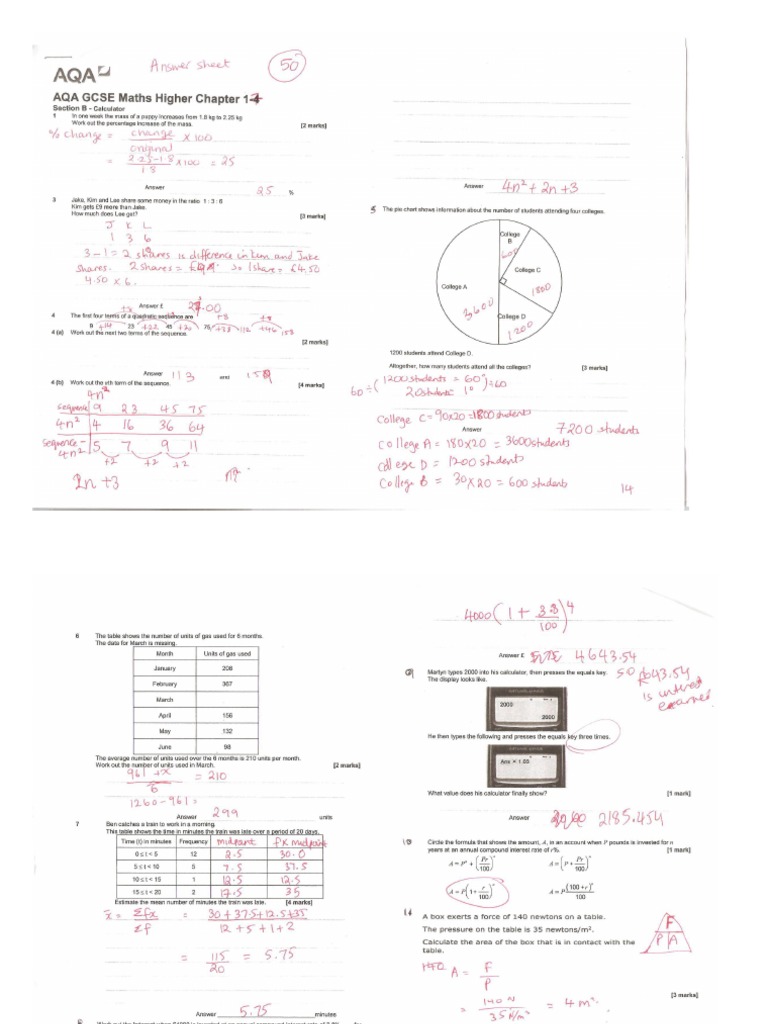 Answer sheet
50
AQA
AQA GCSE Maths Higher Chapter 1-
Section B - Calculator
1 In one week the mass of a puppy increases from 1.8 kg to 2.25 kg
Work out the percentage increase of the mass.
[2 marks]
% change = change / original × 100
= 2.25-1.8 / 1.8 ×100 = 25
Answer 25 %
3 Jake, Kim and Lee share some money in the ratio 1 : 3 : 6
Kim gets £9 more than Jake.
How much does Lee get?
[3 marks]
J K L
1 3 6
3-1 = 2 shares is difference in Kim and Jake
shares. 2 shares = £9. so 1share = £4.50
4.50 × 6.
Answer £ 27.00
4 The first four terms of a quadratic sequence are
+8 +8
9 +14 23 +22 45 75
4 (a) Work out the next two terms of the sequence.
[2 marks]
Answer 113 and
4 (b) Work out the nth term of the sequence.
[4 marks]
4n²
sequence 9 23 45 75
4n² 4 16 36 64
sequence - 4n² 5 7 9 11
+2 +2 +2
2n +3
Answer 4n² + 2n +3
5 The pie chart shows information about the number of students attending four colleges.
College B 600
College C 1800
College A 3600
College D 1200
1200 students attend College D.
Altogether, how many students attend all the colleges?
[3 marks]
60 ÷ ( 1200 students = 60° ) ÷60
20 students 1°
College C = 90×20 = 1800 students
Answer 7200 students
College A = 180×20 = 3600 students
College D = 1200 students
College B = 30×20 = 600 students
14
6 The table shows the number of units of gas used for 6 months.
The data for March is missing.
Month Units of gas used
January 208
February 367
March
April 156
May 132
June 98
The average number of units used over the 6 months is 210 units per month.
Work out the number of units used in March.
[2 marks]
961 + x / 6 = 210
1260-961 =
Answer 299 units
7 Ben catches a train to work in a morning.
This table shows the time in minutes the train was late over a period of 20 days.
Time (t) in minutes Frequency midpoint f× midpoint
0 ≤ t < 5 12 2.5 30.0
5 ≤ t < 10 5 7.5 37.5
10 ≤ t < 15 1 12.5 12.5
15 ≤ t < 20 2 17.5 35
Estimate the mean number of minutes the train was late.
[4 marks]
x̄ = Σfx / Σf = 30 + 37.5 + 12.5 + 35 / 12 + 5 + 1 + 2
= 115 / 20 = 5.75
Answer 5.75 minutes
4000 (1 + / 100)⁴
Answer £ 4643.54
so £643.54 is interest earned
Martyn types 2000 into his calculator, then presses the equals key.
The display looks like.
2000
2000
He then types the following and presses the equals key three times.
Ans × 1.03
What value does his calculator finally show?
[1 mark]
Answer 2185.454
10 Circle the formula that shows the amount, A, in an account when P pounds is invested for n
years at an annual compound interest rate of r%.
[1 mark]
A = Pⁿ + (Pr/100)ⁿ A = (P + Pr/100)ⁿ
A = P(1 + r/100)ⁿ A = P(100 + r)ⁿ/100
A box exerts a force of 140 newtons on a table.
The pressure on the table is 35 newtons/m².
Calculate the area of the box that is in contact with the
table.
F
P A
A = F / P
= 140 N / 35 N/m² = 4 m².
[3 marks]